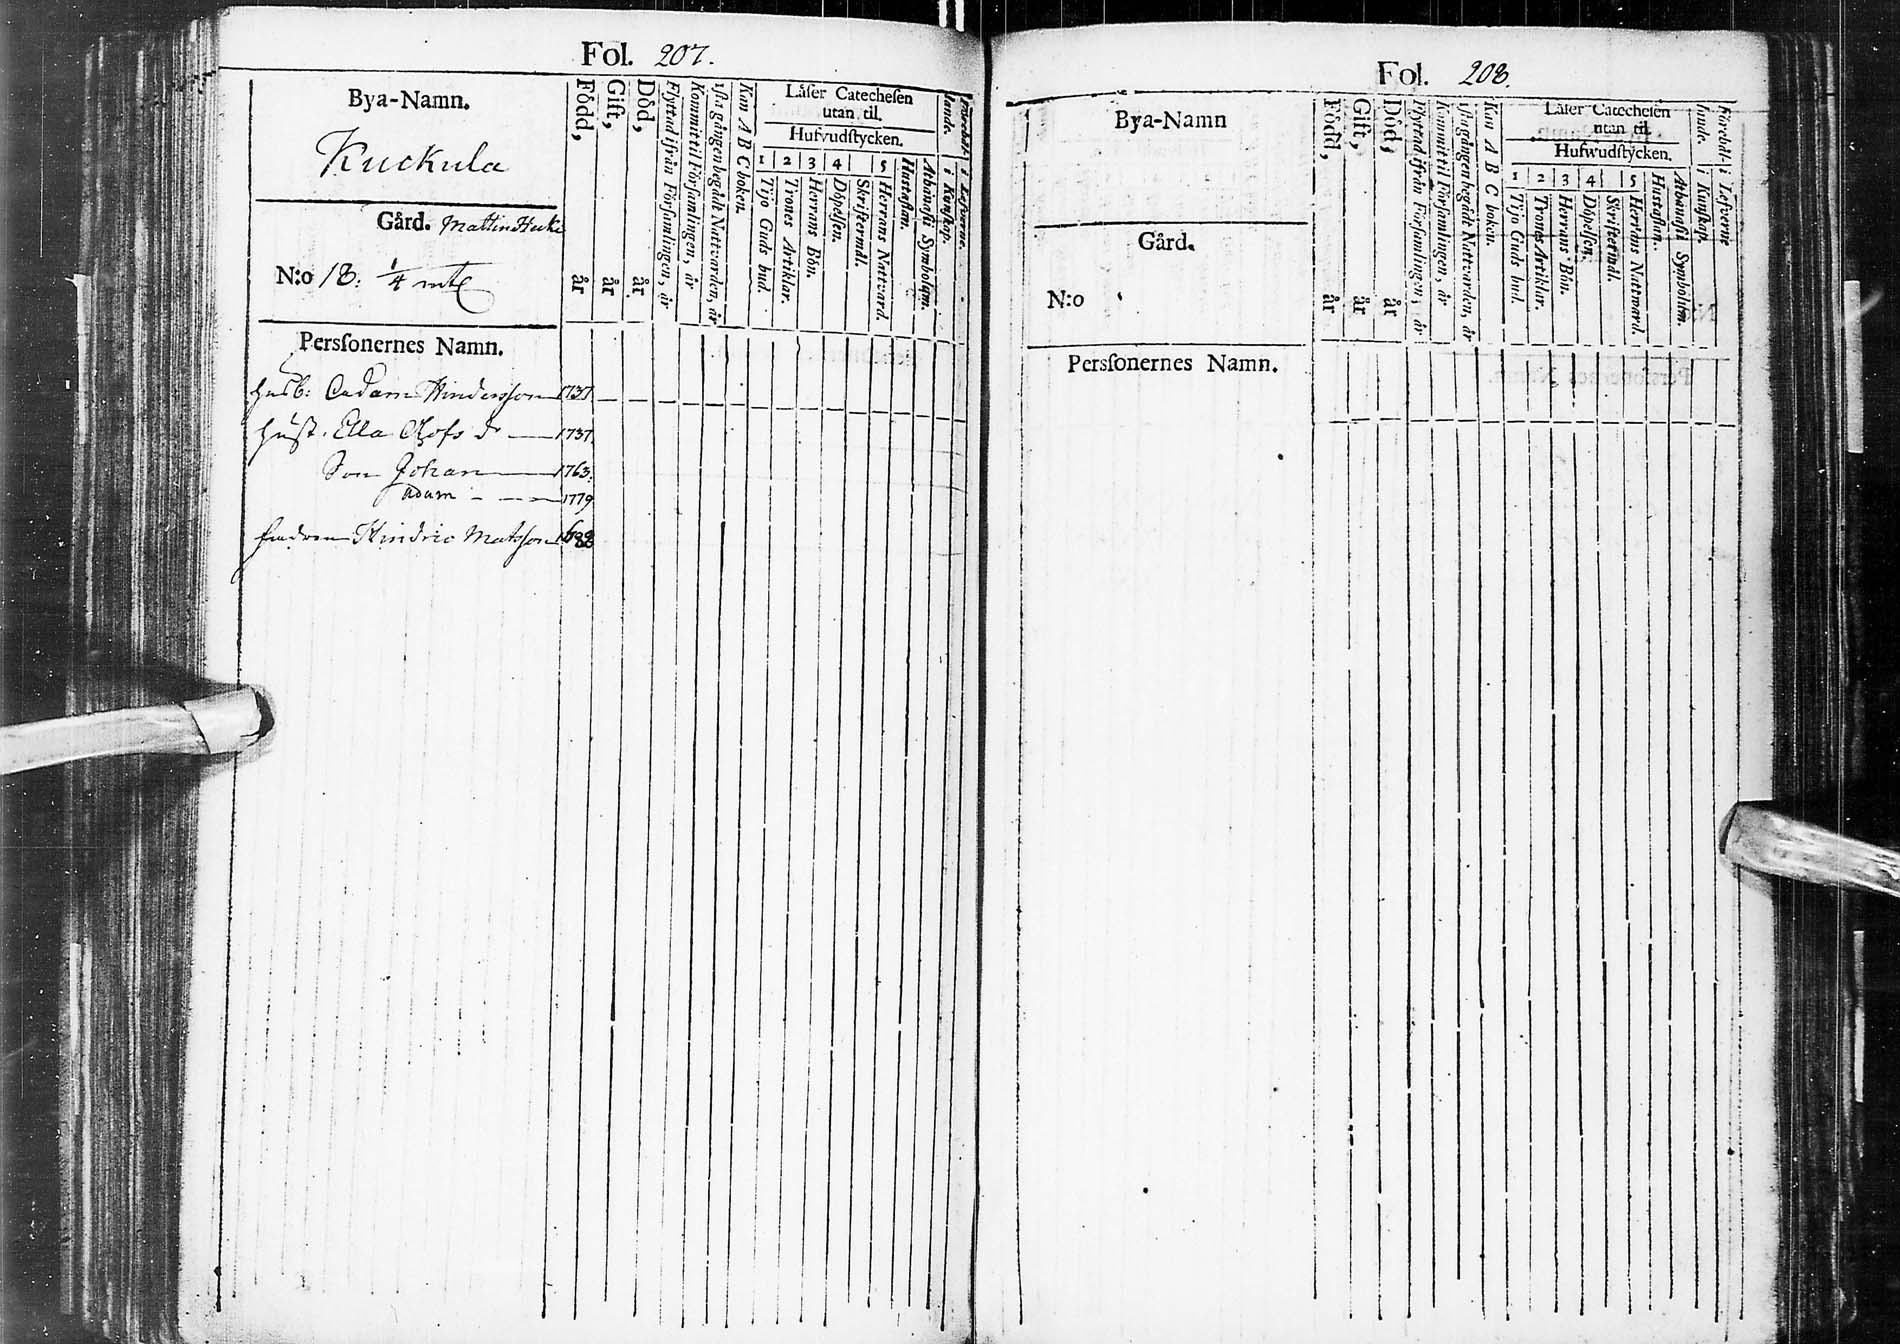 Fol. 207.
Bya-Namn.
Kuckula
Gård. Mattina Heiki
N:o 18: 1/4 mtl
Född, år
Gift, år
Död, år
Flyttad ifrån Församlingen, år
Kommit til Församlingen, år
1sta gången begådt Nattvarden, år
Kan A B C boken.
Låser Catechesen
utan til.
Hufvudstycken.
1 2 3 4 5
Tijo Guds bud.
Trones Artiklar.
Herrans Bön.
Döpelsen.
Skriftermål.
Herrans Nattvard.
Hustaflan.
Athanasii Symbolum.
Förehållande.
i Kunskap.
i Lefverne.
Personernes Namn.
Husb: Adam Hindersson 1737.
Hust. Ella Olofs dr 1737.
Son Johan 1763.
Adam 1779
Hindric Matsson
Fol. 208.
Bya-Namn
Gård.
N:o
Född, år
Gift, år
Död, år
Flyttad ifrån Församlingen, år
Kommit til Församlingen, år
1sta gången begådt Nattvarden, år
Kan A B C boken.
Låser Catechesen
utan til.
Hufwudstycken.
1 2 3 4 5
Tijo Guds bud.
Trones Artiklar.
Herrans Bön.
Döpelsen.
Skriftermål.
Herrans Nattward.
Hustaflan.
Athanasii Symbolum.
Förehållande.
i Kunskap.
i Lefverne
Personernes Namn.